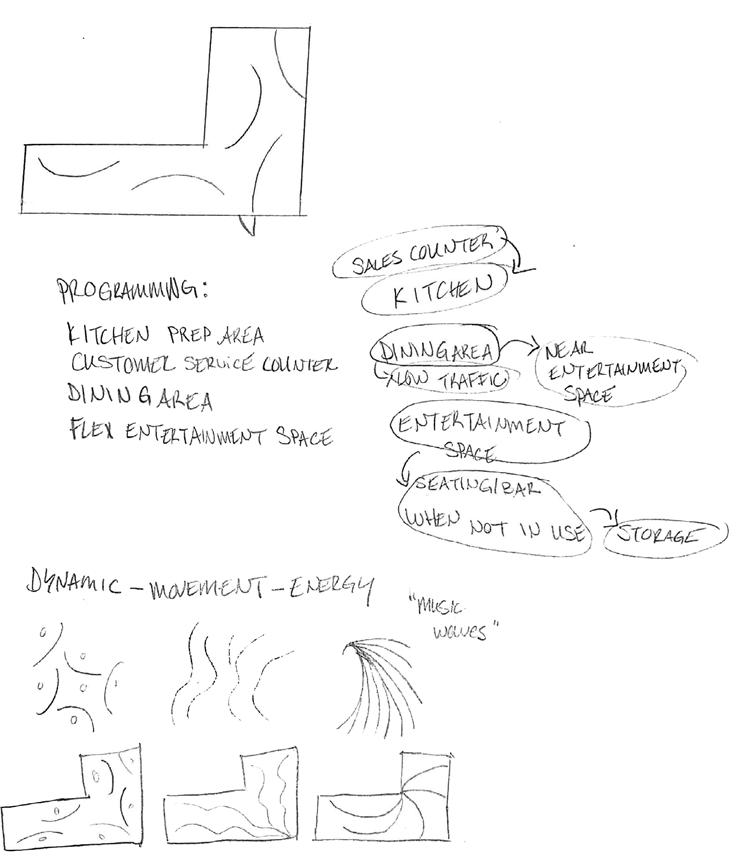 PROGRAMMING:
KITCHEN PREP AREA
CUSTOMER SERVICE COUNTER
DINING AREA
FLEX ENTERTAINMENT SPACE
SALES COUNTER
KITCHEN
DINING AREA
LOW TRAFFIC
NEAR
ENTERTAINMENT
SPACE
ENTERTAINMENT
SPACE
SEATING/BAR
WHEN NOT IN USE
STORAGE
DYNAMIC - MOVEMENT - ENERGY
"MUSIC
WAVES"